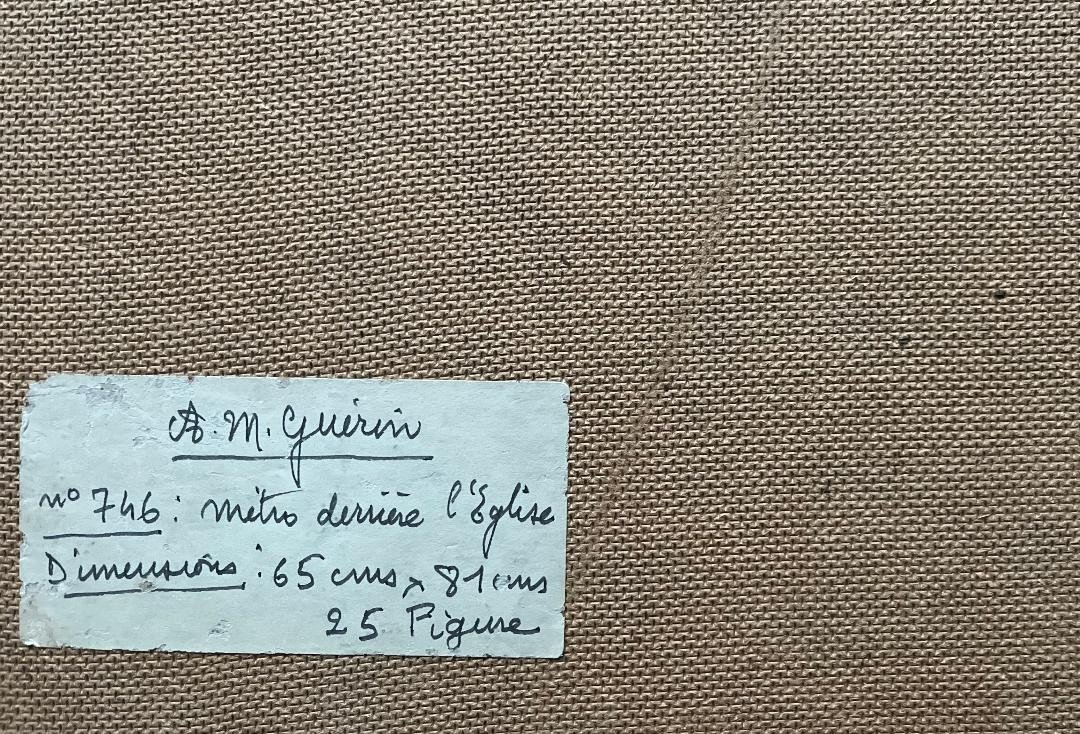 A. M. Guérin
n° 746 : métro derrière l'Église
Dimensions : 65 cms x 81 cms
25 Figure